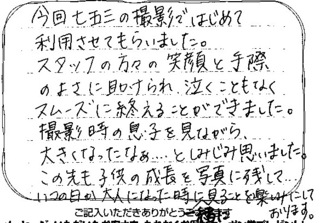 今回七五三の撮影ではじめて
利用させてもらいました。
スタッフの方々の笑顔と手際
のよさに助けられ、泣くこともなく
スムーズに終えることができました。
撮影時の息子を見ながら、
大きくなったなぁ…としみじみ思いました。
この先も子供の成長を写真に残して…
いつの日か大人になった時に見ることを楽しみにして
おります。
ご記入いただきありがとうご